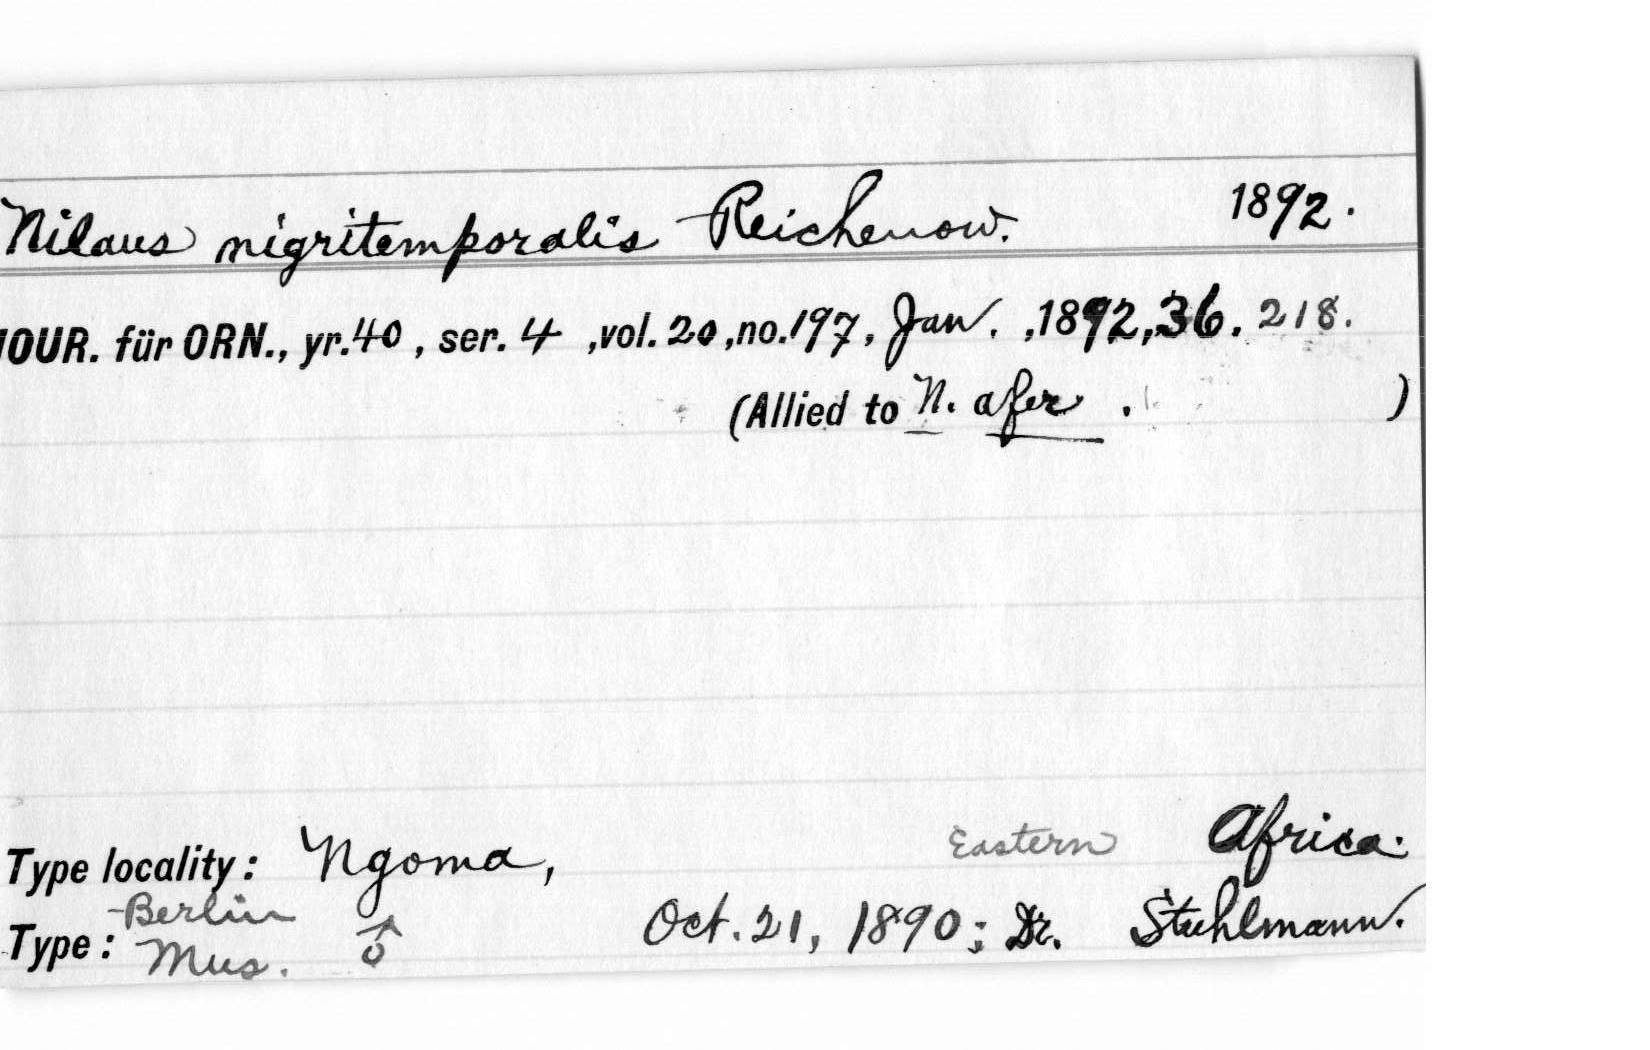 Nilaus nigritemporalis Reichenow. 1892.
JOUR. für ORN., yr. 40, ser. 4, vol. 20, no. 197, Jan., 1892, 36. 218.
(Allied to N. afer. )
Type locality: Ngoma, Eastern Africa.
Type: Berlin Mus. ♂ Oct. 21, 1890; Dr. Stuhlmann.